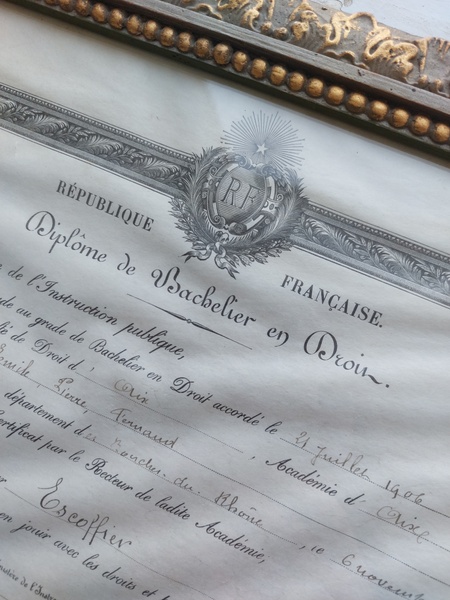 RF
RÉPUBLIQUE FRANÇAISE.
Diplôme de Bachelier en Droit.
de l'Instruction publique,
au grade de Bachelier en Droit accordé le 21 Juillet 1906
de Droit d' Aix, Académie d' Aix
Pierre, Fernand
département des Bouches du Rhône, le 6 novem
certificat par le Recteur de ladite Académie,
Escoffier
en jouir avec les droits et